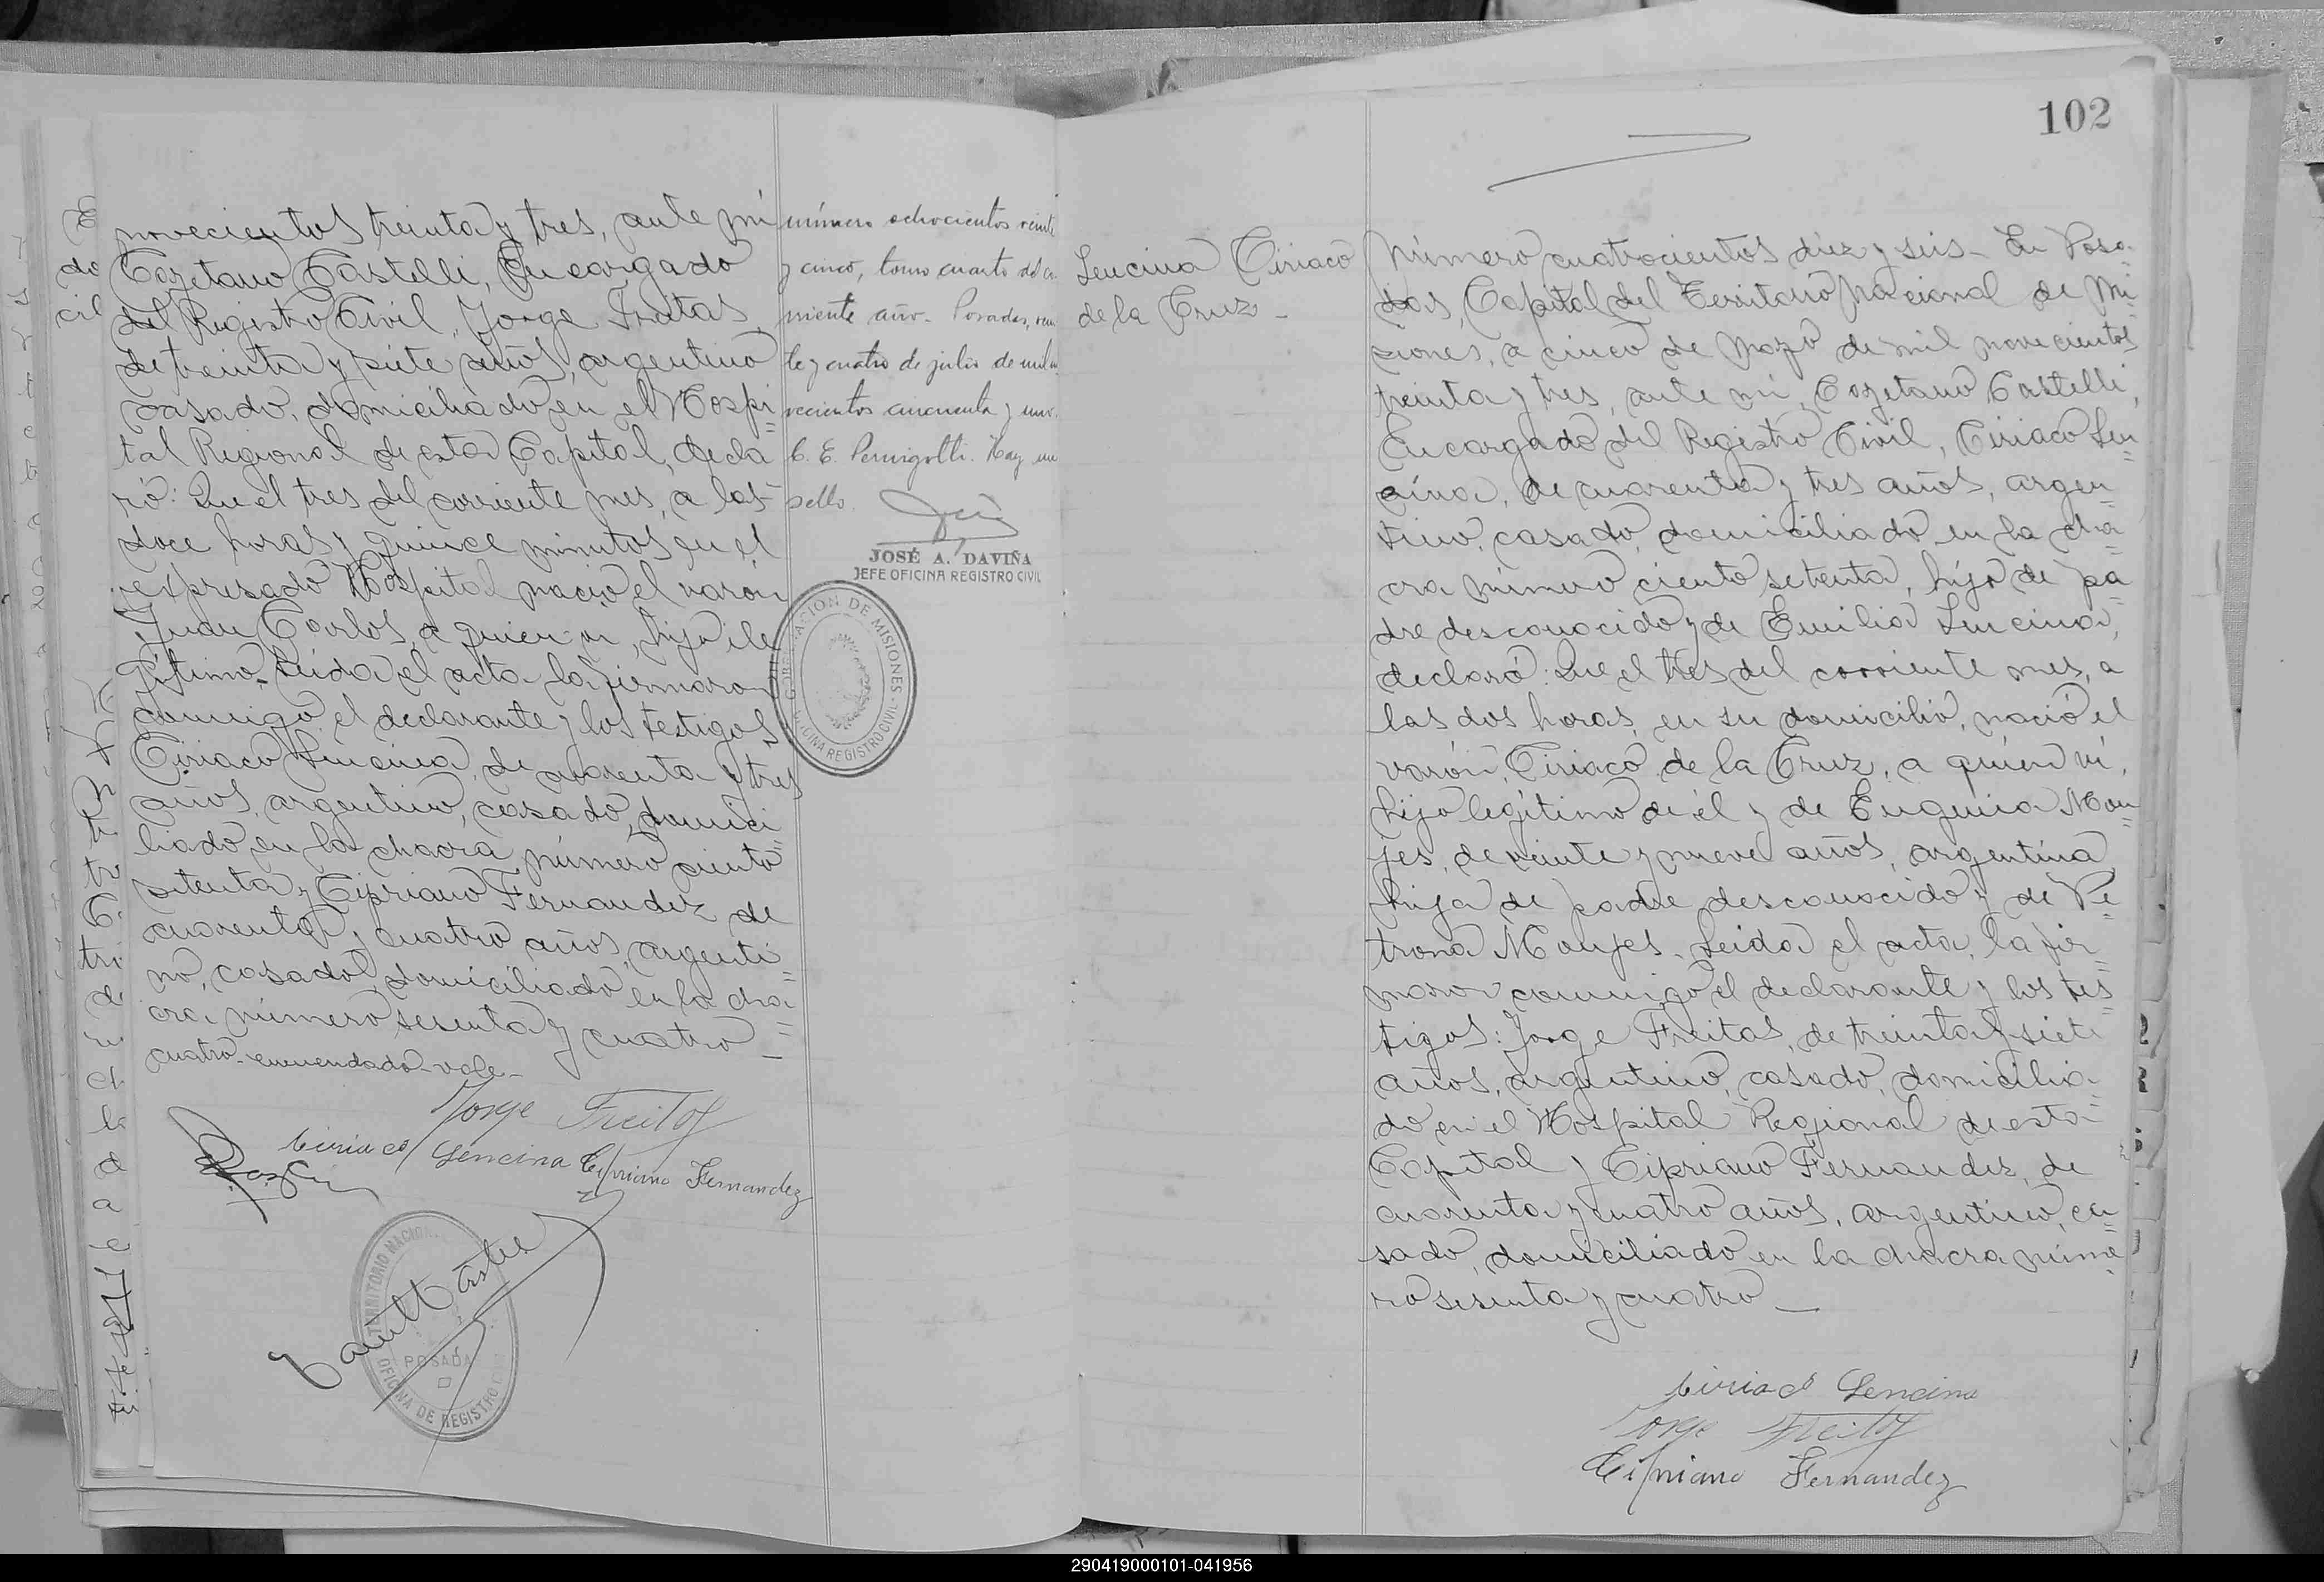 novecientos treinta y tres, ante mi
Cayetano Castelli, Encargado
del Registro Civil, Jorge Freitas,
de treinta y siete años, argentino
casado, domiciliado en el Hospi=
tal Regional de esta Capital, decla
ró: Que el tres del corriente mes, a las
doce horas y quince minutos en el
expresado Hospital nació el varón
Juan Carlos, a quien vi, hijo ile
gítimo. Leida el acta la firmaron
conmigo el declarante y los testigos
Ciriaco Lencina, de cuarenta y tres
años, argentino, casado, domici=
liado en la chacra número ciento
setenta y Cipriano Fernandez de
cuarenta y cuatro años, argenti=
no, casado, domiciliado en la cha=
cra número sesenta y cuatro _
cuatro-enmendado-vale-
Jorge Freitas
Ciriaco Lencina Cipriano Fernandez
TERRITORIO NACIONAL
POSADAS
OFICINA DE REGISTRO
número ochocientos veinte
y cinco, tomo cuarto del co
rriente año. Posadas, vein
te y cuatro de julio de mil no
vecientos cincuenta y uno.
C. E. Pernigotti. Hay un
sello.
JOSÉ A. DAVIÑA
JEFE OFICINA REGISTRO CIVIL
GOBERNACION DE MISIONES
OFICINA REGISTRO CIVIL
102
Lencina Ciriaco
de la Cruz -
Número cuatrocientos diez y seis- En Posa-
das, Capital del Territorio Nacional de Mi
siones, a cinco de mayo de mil novecientos
treinta y tres, ante mi, Cayetano Castelli,
Encargado del Registro Civil, Ciriaco Len=
cina, de cuarenta y tres años, argen=
tino, casado, domiciliado en la cha=
cra número ciento setenta, hijo de pa=
dre desconocido y de Emilia Lencina,
declaró: Que el tres del corriente mes, a
las dos horas, en su domicilio, nació el
varón, Ciriaco de la Cruz, a quién vi,
hijo legítimo de él y de Eugenia Mon=
jes, de veinte y nueve años, argentina
hija de padre desconocido y de Pe=
trona Monjes. Leida el acta, la fir=
maron conmigo el declarante y los tes=
tigos: Jorge Freitas, de treinta y siete
años, argentino, casado, domicilia-
do en el Hospital Regional de esta
Capital y Cipriano Fernandez, de
cuarenta y cuatro años, argentino, ca=
sado, domiciliado en la chacra núme=
ro sesenta y cuatro _
Ciriaco Lencina
Jorge Freitas
Cipriano Fernandez
290419000101-041956